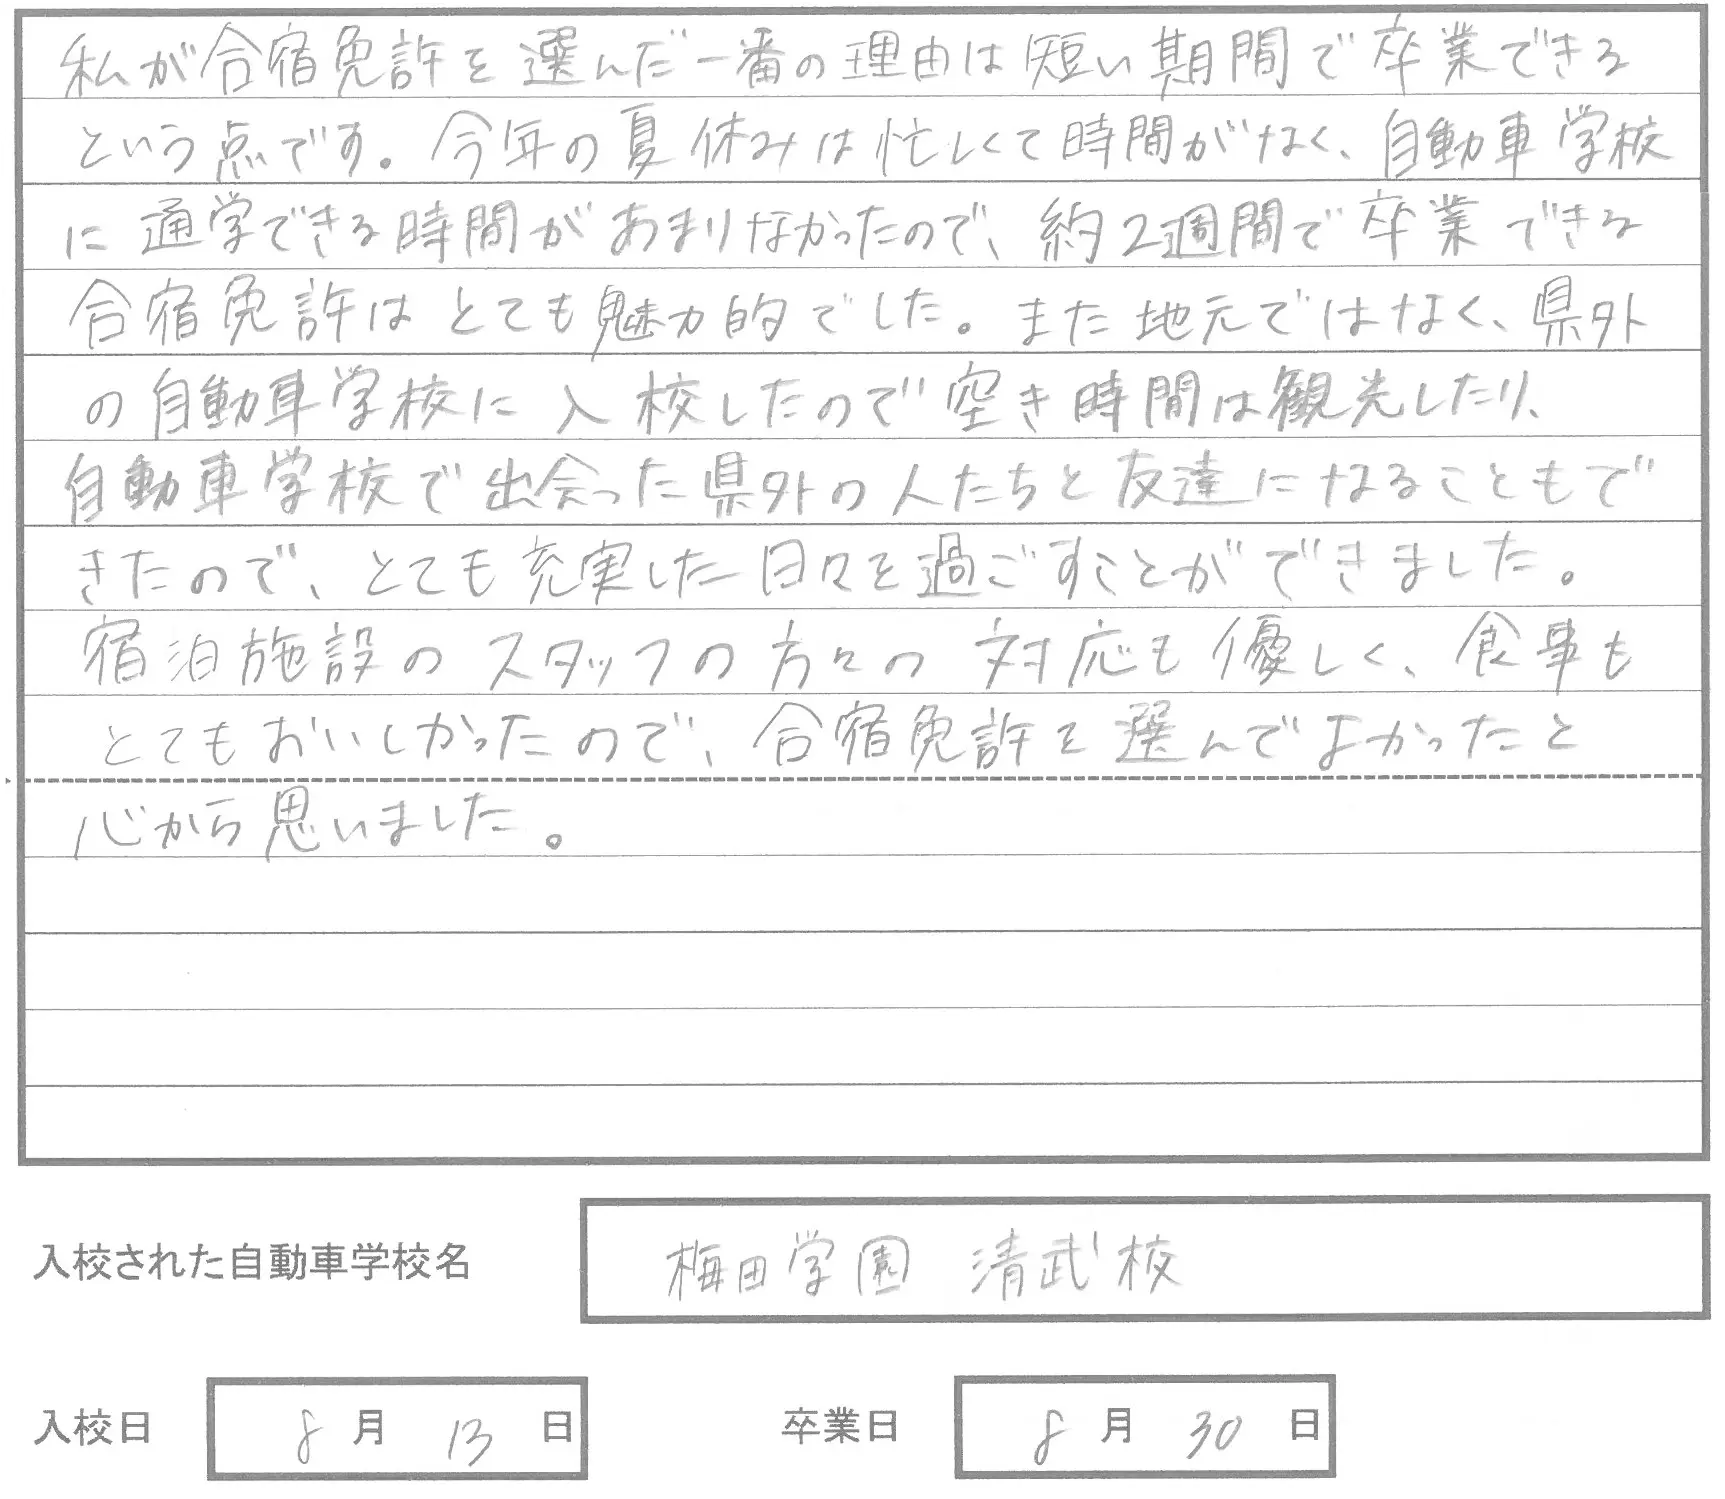 私が合宿免許を選んだ一番の理由は短い期間で卒業できる
という点です。今年の夏休みは忙しくて時間がなく、自動車学校
に通学できる時間があまりなかったので、約2週間で卒業できる
合宿免許はとても魅力的でした。また地元ではなく、県外
の自動車学校に入校したので空き時間は観光したり、
自動車学校で出会った県外の人たちと友達になることもで
きたので、とても充実した日々を過ごすことができました。
宿泊施設のスタッフの方々の対応も優しく、食事も
とてもおいしかったので、合宿免許を選んでよかったと
心から思いました。
入校された自動車学校名 梅田学園 清武校
入校日 8月13日 卒業日 8月30日